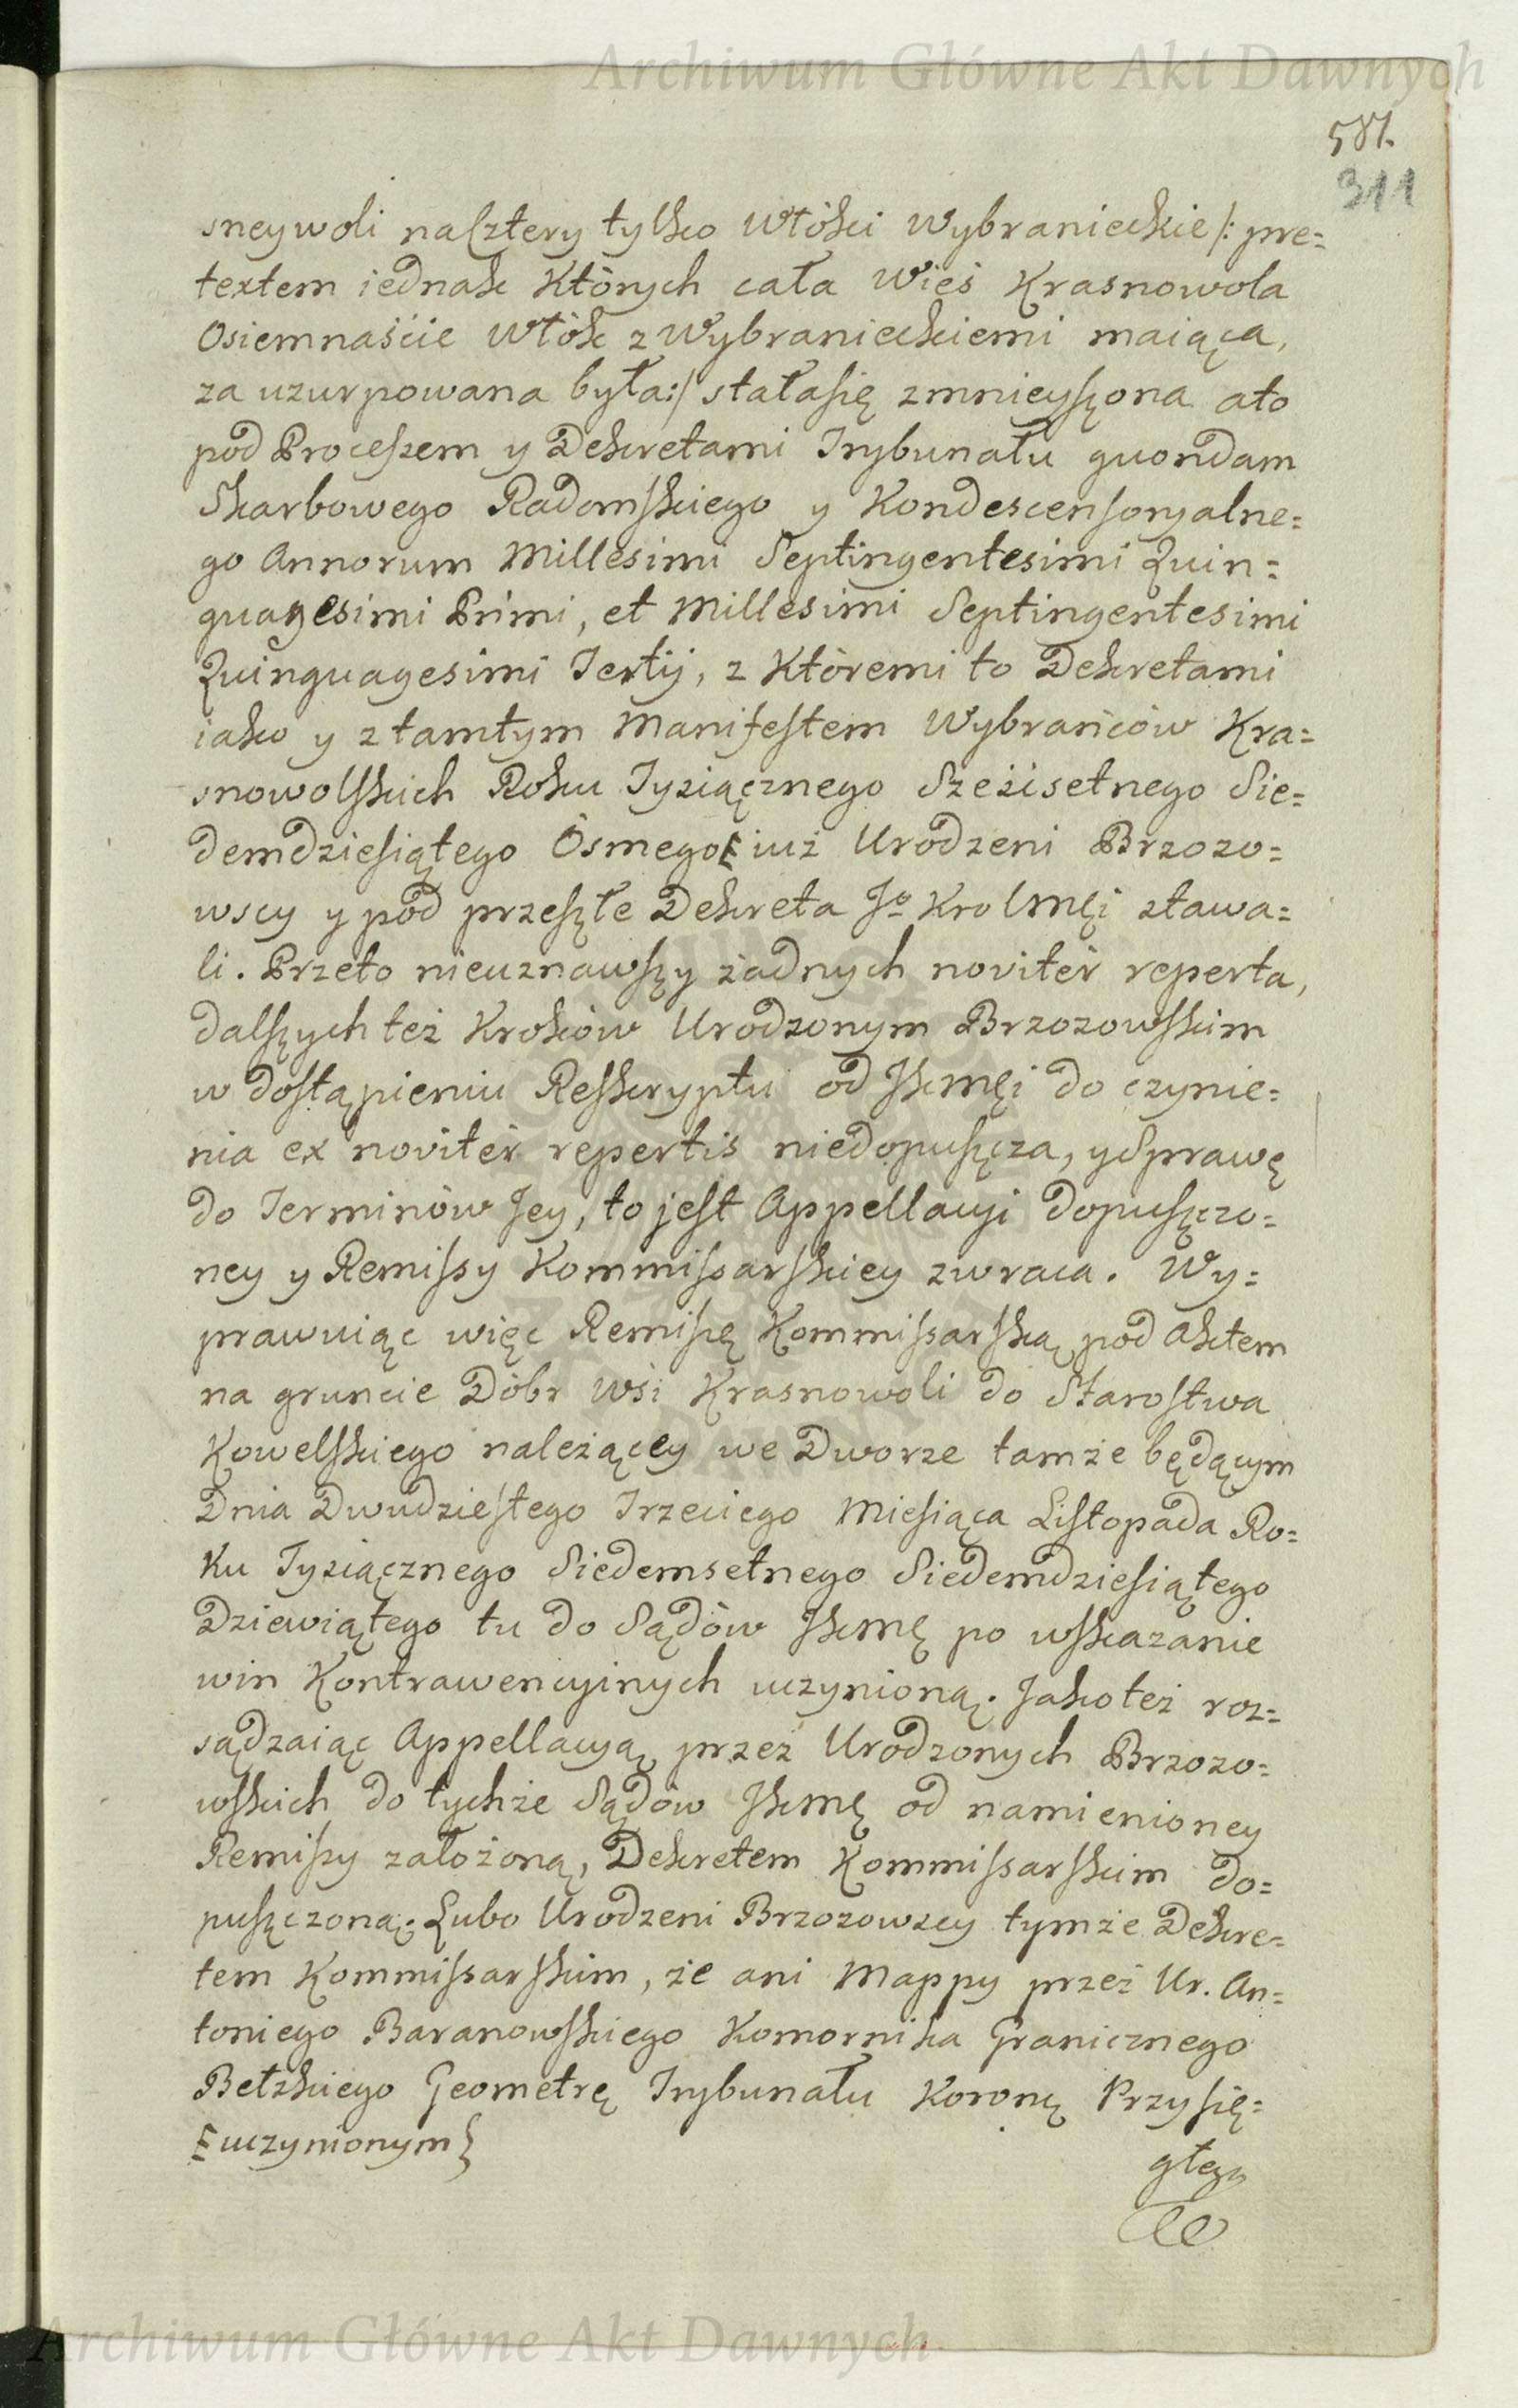 Archiwum Główne Akt Dawnych
581.
311
sney woli na Cztery tylko Włóki Wybranieckie /: pre=
textem iednak Których cała Wieś Krasnowola
Osiemnaście Włók z Wybranieckiemi maiąca,
za uzurpowana była :/ stała się zmnieyszona a to
pod Processem y Dekretami Trybunału quondam
Skarbowego Radomskiego y Kondescensoryalne=
go Annorum Millesimi Septingentesimi Quin=
quagesimi Primi, et Millesimi Septingentesimi
Quinquagesimi Tertij, z Któremi to Dekretami
iako y z tamtym Manifestem Wybrańców Kra=
snowolskich Roku Tysiącznego Sześćsetnego Sie=
demdziesiątego Osmego [ iuż Urodzeni Brzozo=
wscy y pod przeszłe Dekreta Jo Krolmći stawa=
li. Przeto nieuznawszy żadnych noviter reperta,
dalszych też Kroków Urodzonym Brzozowskim
w dostąpieniu Reskryptu od Jkmći do czynie=
nia ex noviter repertis niedopuszcza, y Sprawę
do Terminów Jey, to jest Appellacyi dopuszczo=
ney y Remissy Kommissarskiey zwraca. Wy=
prawuiąc więc Remissę Kommissarską pod Aktem
na gruncie Dóbr Wsi Krasnowoli do Starostwa
Kowelskiego należącey we Dworze tamże będącym
Dnia Dwudziestego Trzeciego Miesiąca Listopada Ro=
ku Tysiącznego Siedemsetnego Siedemdziesiątego
Dziewiątego tu do Sądów Jkmę po wskazanie
win Kontrawencyinych uczynioną. Jako też roz=
sądzaiąc Appellacyą przez Urodzonych Brzozo=
wskich do tychże Sądów Jkmę od namienioney
Remissy założoną, Dekretem Kommissarskim do=
puszczoną. Lubo Urodzeni Brzozowscy tymże Dekre=
tem Kommissarskim, że ani Mappy przez Ur. An=
toniego Baranowskiego Komornika Granicznego
Bełzkiego Geometrę Trybunału Koronę Przysię=
[ uczynionym }
głego
Archiwum Główne Akt Dawnych